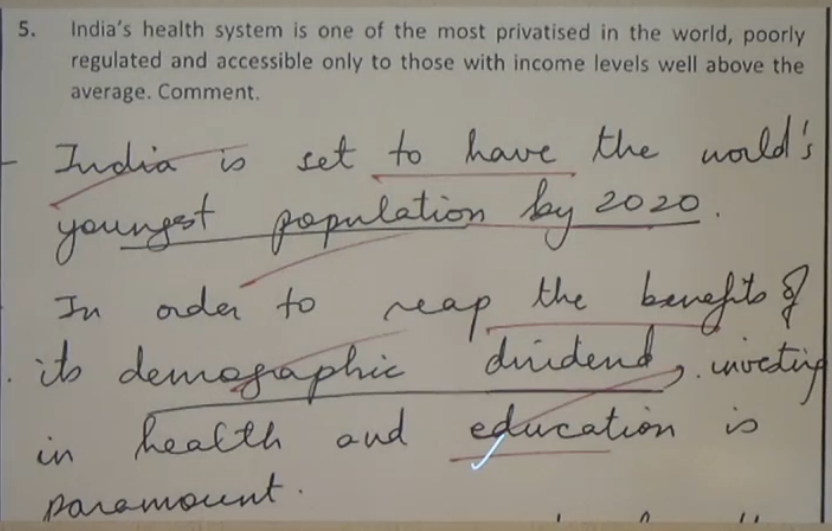 5. India's health system is one of the most privatised in the world, poorly
regulated and accessible only to those with income levels well above the
average. Comment.
- India is set to have the world's
youngest population by 2020.
In order to reap the benefits of
its demographic dividend, investing
in health and education is
paramount.